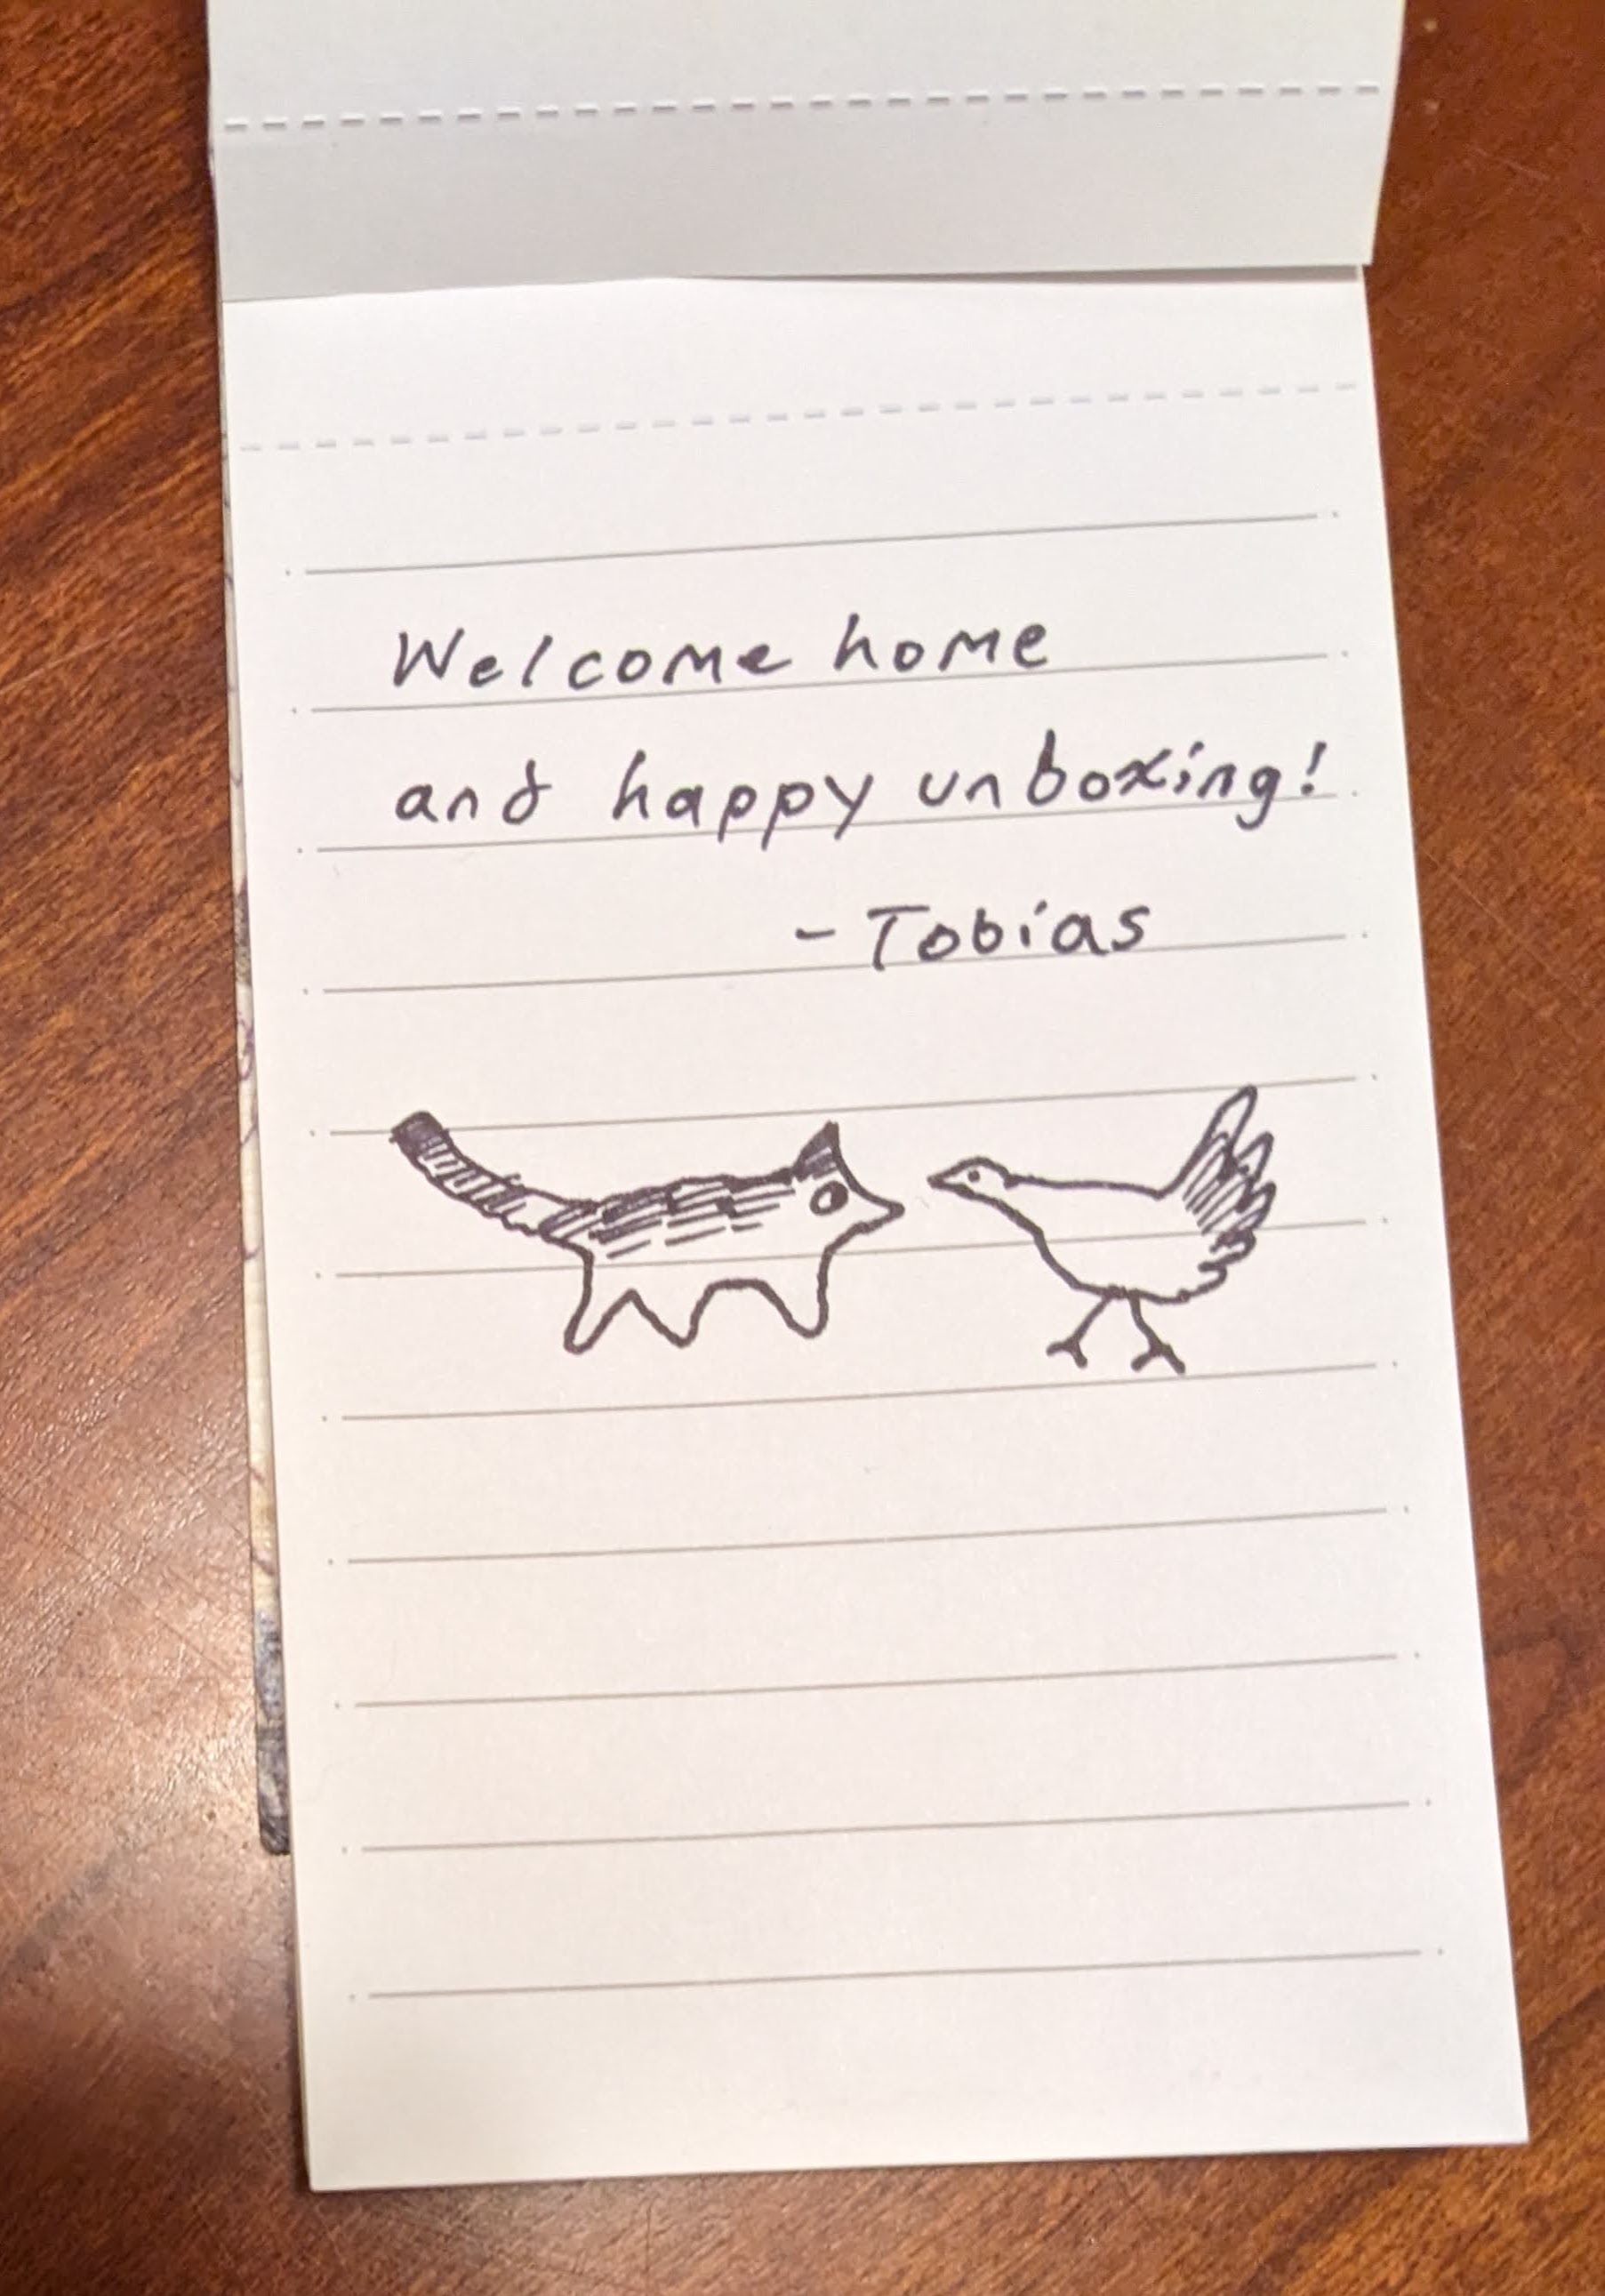 Welcome home
and happy unboxing!
- Tobias